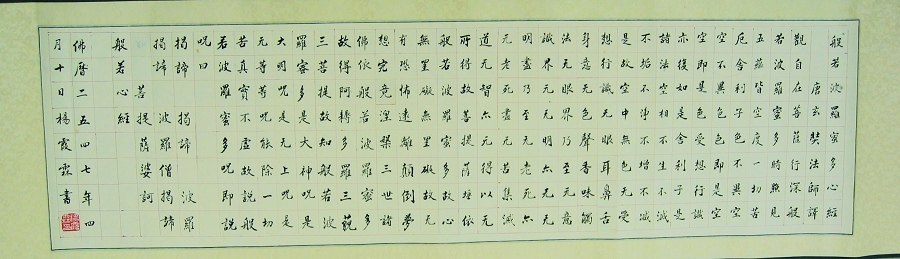 般若波羅蜜多心經
唐玄奘法師譯
觀自在菩薩行深般
若波羅蜜多時照見
五蘊皆空度一切苦
厄舍利子色不異空
空不異色色即是空
空即是色受想行識
亦復如是舍利子是
諸法空相不生不滅
不垢不淨不增不減
是故空中无色无受
想行識无眼耳鼻舌
身意无色聲香味觸
法无眼界乃至无意
識界无无明亦无无
明盡乃至无老死亦
无老死盡无苦集滅
道无智亦无得以无
所得故菩提薩埵依
般若波羅蜜多故心
無罣礙無罣礙故无
有恐怖遠離顛倒夢
想究竟涅槃三世諸
佛依般若波羅蜜多
故得阿耨多羅三藐
三菩提故知般若波
羅蜜多是大神呪是
大明呪是无上呪是
无等等呪能除一切
苦真實不虛故說般
若波羅蜜多呪即說
呪曰
揭諦 揭諦 波羅
揭諦 波羅僧揭諦
菩提薩婆訶
般若心經
佛曆二五四七年四
月十日楊霞霖書